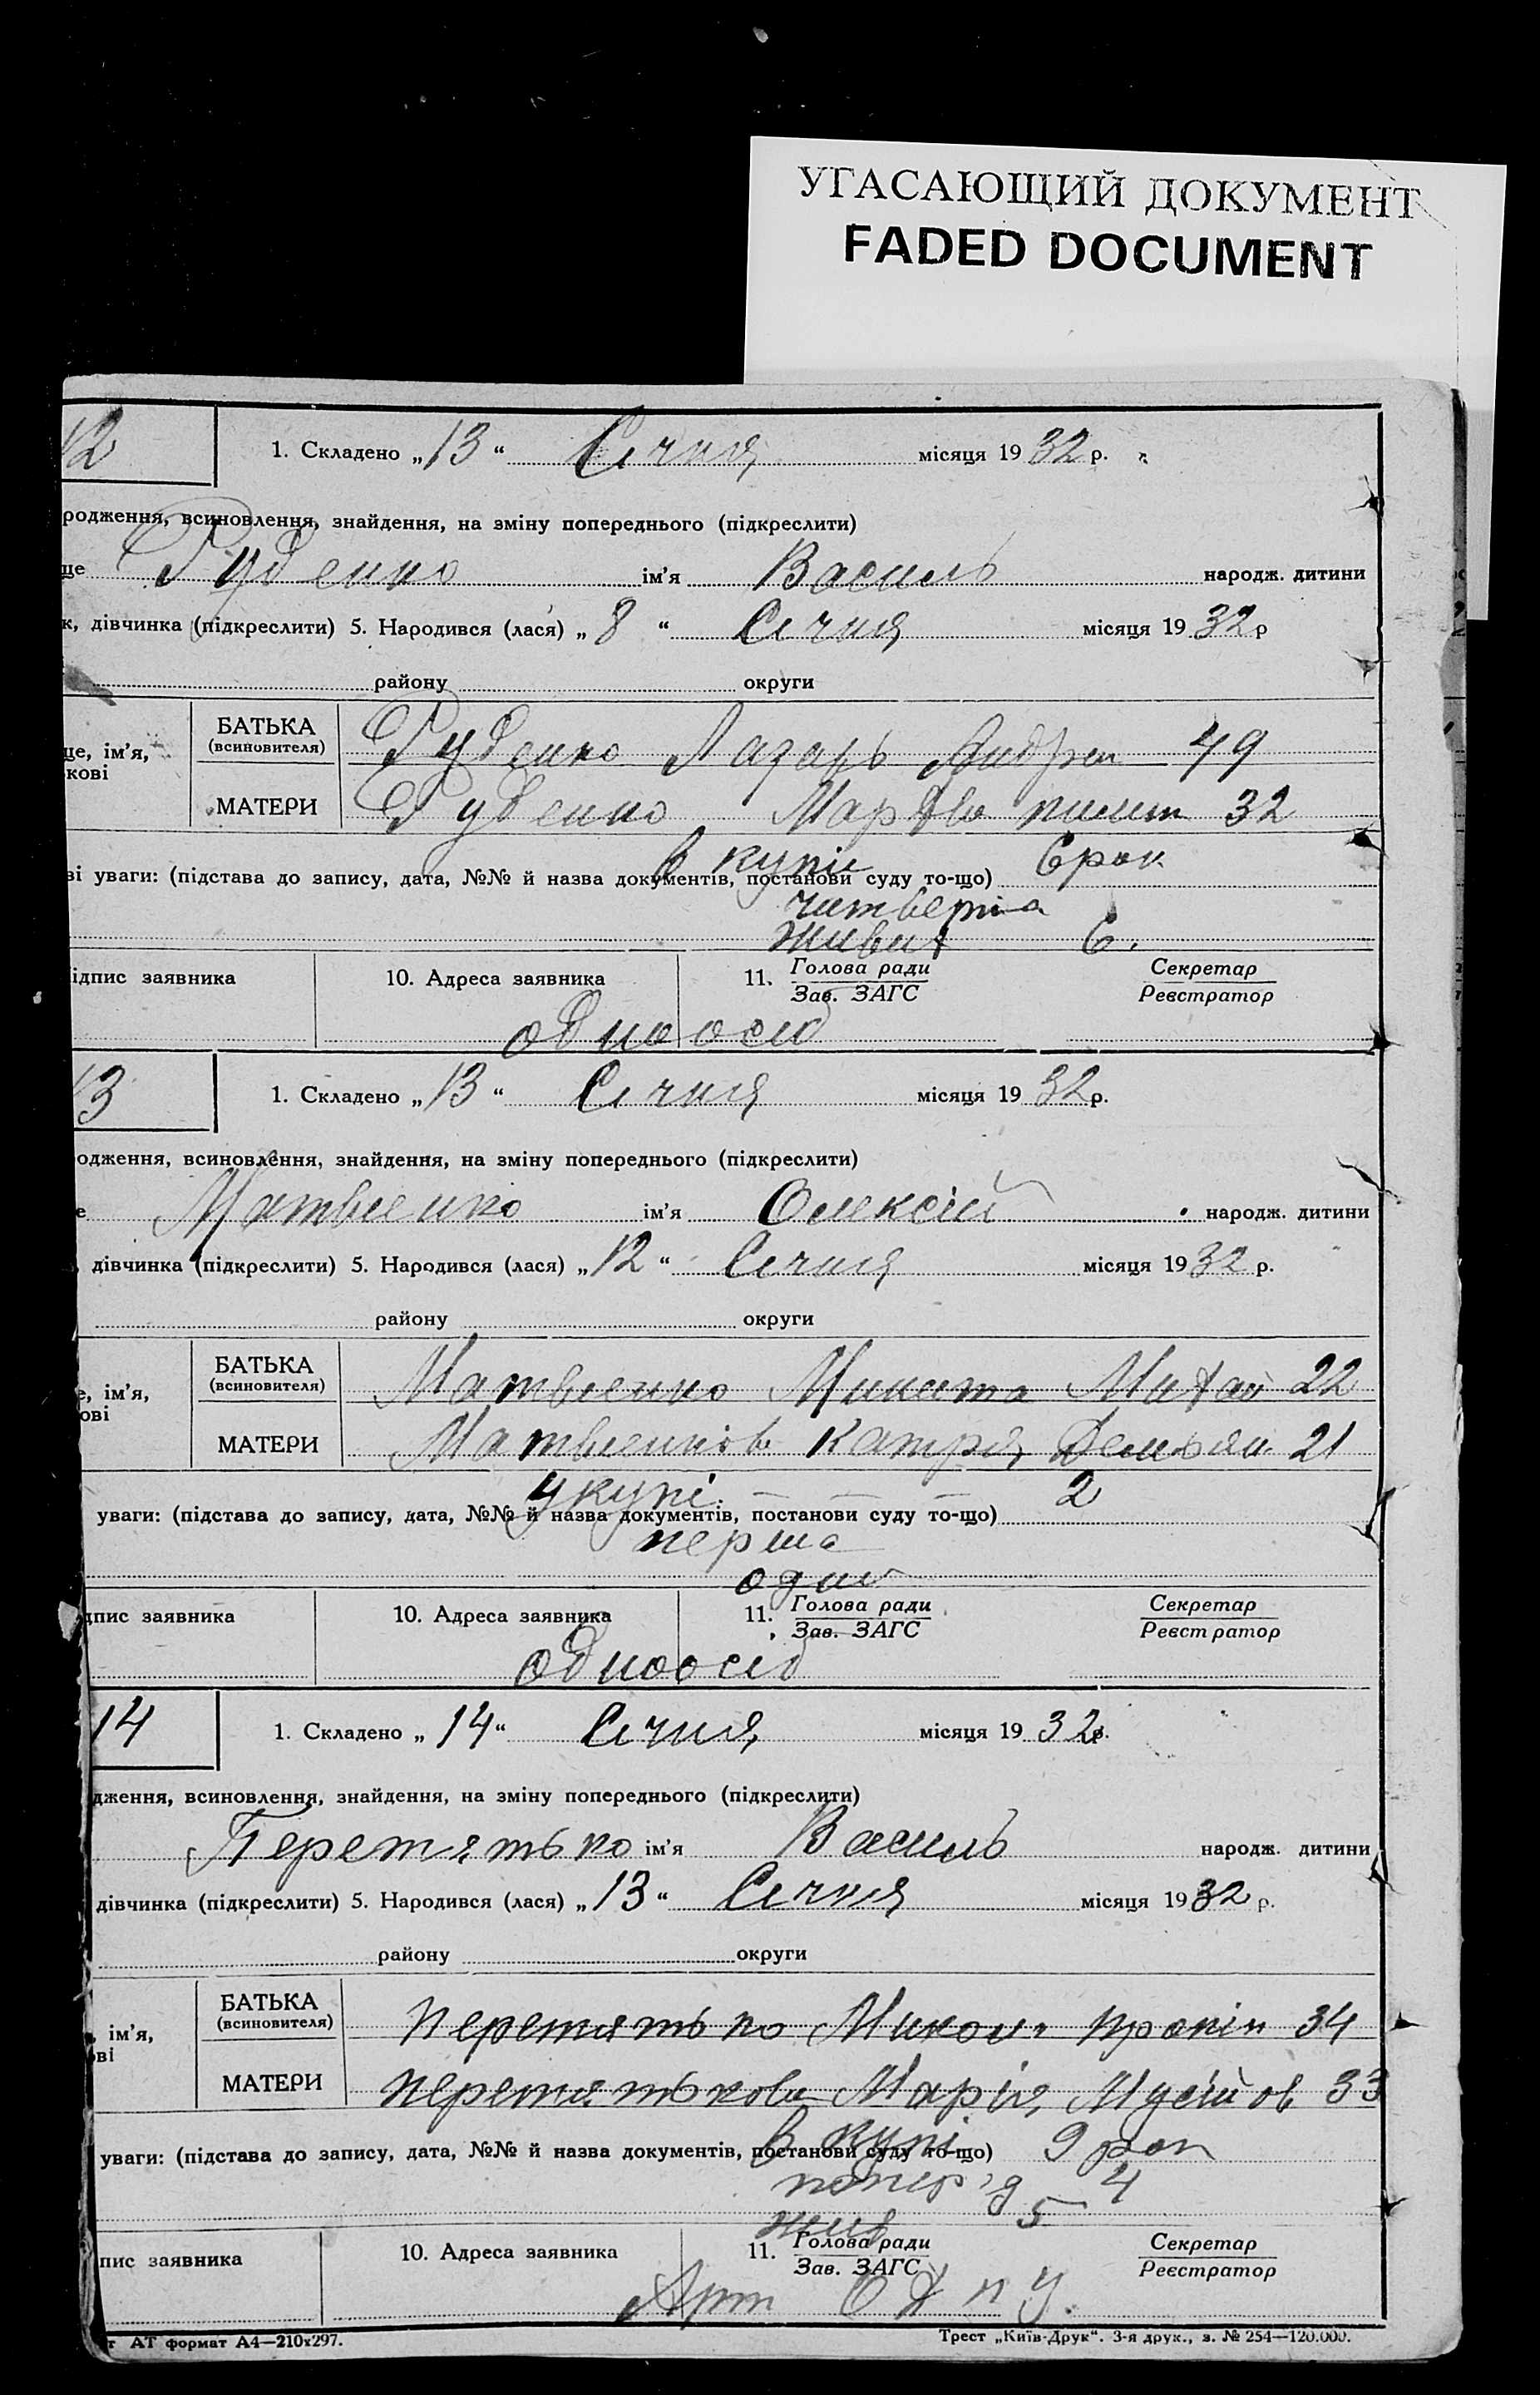 УГАСАЮЩИЙ ДОКУМЕНТ
FADED DOCUMENT
12
1. Складено „13“ Січня місяця 1932 р.
родження, всиновлення, знайдення, на зміну попереднього (підкреслити)
ще Руденко ім’я Василь народж. дитини
к, дівчинка (підкреслити) 5. Народився (лася) „8“ Січня місяця 1932 р
району округи
БАТЬКА
(всиновителя)
Руденко Лазарь Андрии 49
ще, ім’я,
кові
МАТЕРИ
Руденко 32
в купіе 6 рок
ві уваги: (підстава до запису, дата, №№ й назва документів, постанови суду то-що)
читверта
живих 6.
ідпис заявника 10. Адреса заявника 11. Голова ради Секретар
Зав. ЗАГС Реєстратор
одноосіб
13
1. Складено „13“ Січня місяця 1932 р.
одження, всиновлення, знайдення, на зміну попереднього (підкреслити)
е Матвиенко ім’я Олексій народж. дитини
дівчинка (підкреслити) 5. Народився (лася) „12“ Січня місяця 1932 р.
району округи
БАТЬКА
(всиновителя)
Матвиенко Микита Михай 22
е, ім’я,
ові
МАТЕРИ
Матвиенкова Катря Демьян 21
укупі. — — — 2
уваги: (підстава до запису, дата, №№ й назва документів, постанови суду то-що)
перша
один
дпис заявника 10. Адреса заявника 11. Голова ради Секретар
Зав. ЗАГС Реєстратор
одноосіб
14
1. Складено „14“ Січня місяця 1932 р.
дження, всиновлення, знайдення, на зміну попереднього (підкреслити)
Перетятько ім’я Василь народж. дитини
дівчинка (підкреслити) 5. Народився (лася) „13“ Січня місяця 1932 р.
району округи
БАТЬКА
(всиновителя)
Перетятько Микола Прокіп 34
, ім’я,
ові
МАТЕРИ
Перетятькова Марія Мусійов 33
в купі 9 рок
уваги: (підстава до запису, дата, №№ й назва документів, постанови суду то-що)
4
5
пис заявника 10. Адреса заявника 11. Голова ради Секретар
Зав. ЗАГС Реєстратор
Арт
т АТ формат А4—210х297. Трест „Київ-Друк“. 3-я друк., з. № 254—120.000.